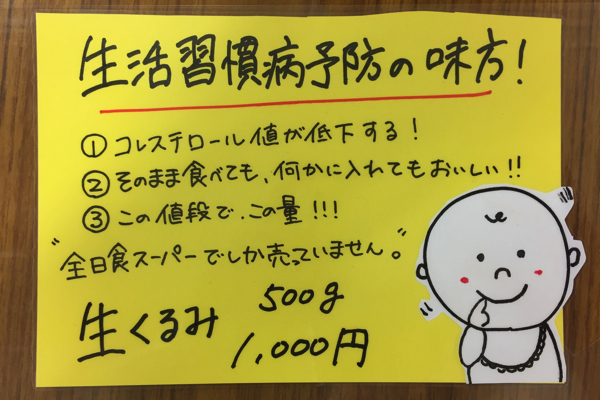 生活習慣病予防の味方!
① コレステロール値が低下する!
② そのまま食べても、何かに入れてもおいしい!!
③ この値段で、この量!!!
"全日食スーパーでしか売っていません。"
生くるみ 500g
1,000円